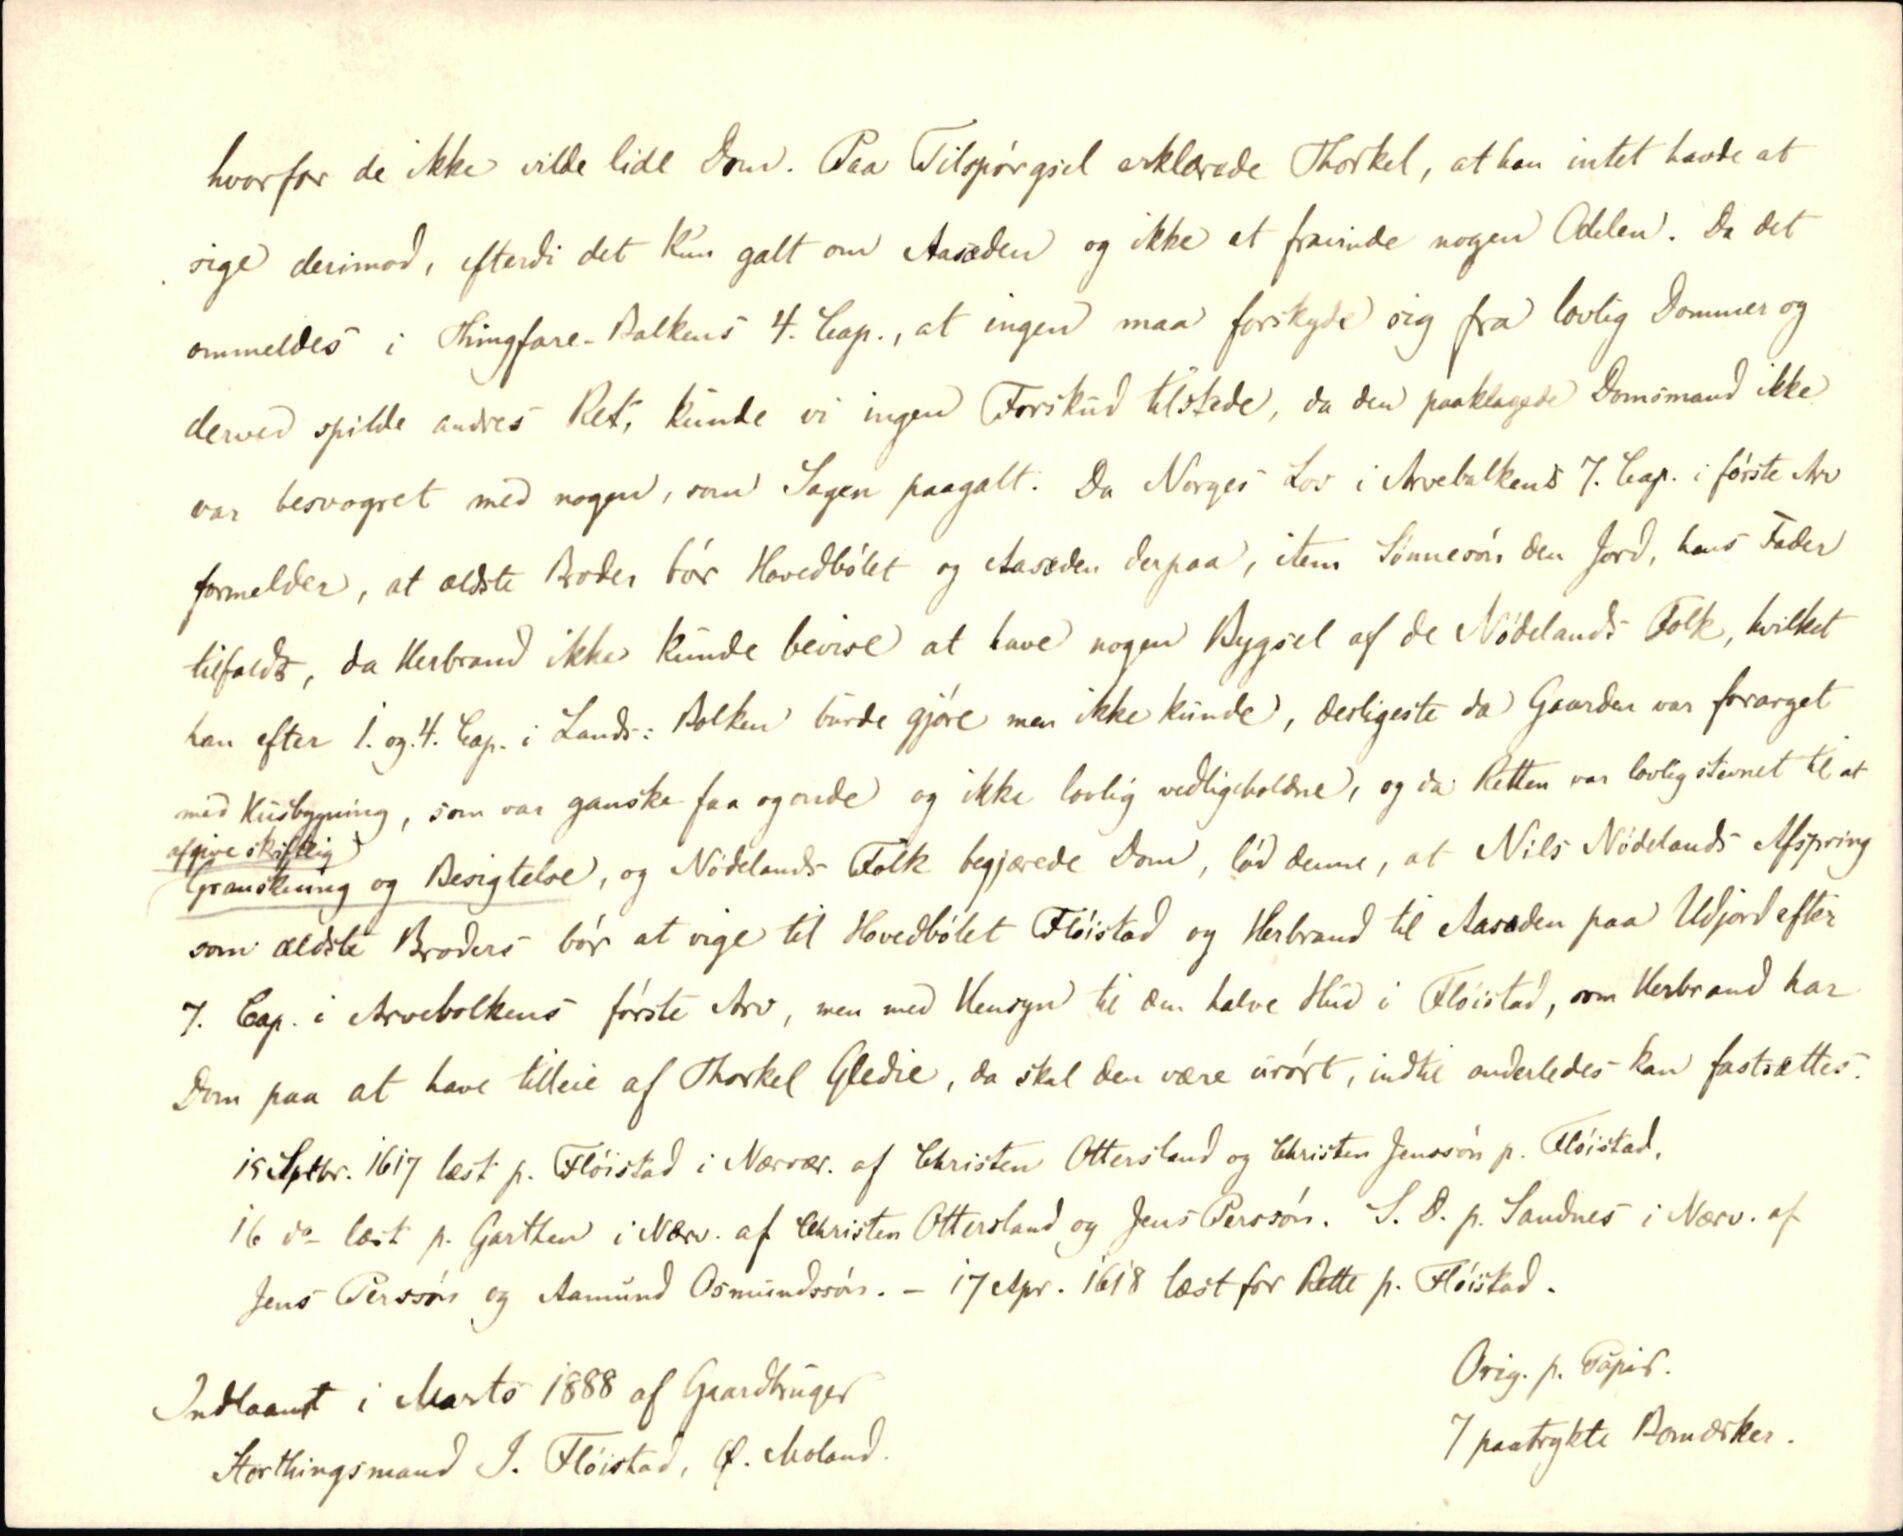 hvorfor de ikke vilde lide Dom. Paa Tilspørgsel erklærede Thorkel, at han intet havde at
sige derimod, efterdi det kun galt om Aasæden og ikke at fravinde nogen Odelen. Da det
ommeldes i Thingfare-Balkens 4. Cap., at ingen maa forskyde sig fra lovlig Dommer og
derved spilde andres Ret, kunde vi ingen Forskud tilstede, da den paaklagede Domsmand ikke
var besvogret med nogen, som Sagen paagalt. Da Norges Lov i Arvebalkens 7. Cap. i første Arv
formelder, at ældste Broder bør Hovedbølet og Aasæden derpaa, item Sønnesøn den Jord, hans Fader
tilfaldt, da Herbrand ikke kunde bevise at have nogen Bygsel af de Nødelands Folk, hvilket
han efter 1. og 4. Cap. i Lands: Bolken burde gjøre men ikke kunde, desligeste da Gaarden var forarget
med Husbygning, som var ganske faa og onde og ikke lovlig vedligeholdne, og da Retten var lovlig stevnet til at
afgive skriftlig
Granskning og Besigtelse, og Nødelands Folk begjærede Dom, lød denne, at Nils Nødelands Afspring
som ældste Broders bør at vige til Hovedbølet Fløistad og Herbrand til Aasæden paa Udjord efter
7. Cap. i Arvebolkens første Arv, men med Hensyn til den halve Hud i Fløistad, som Herbrand har
Dom paa at have tilleie af Thorkel Gledie, da skal den være urørt, indtil anderledes kan fastsættes.
15 Septbr. 1617 læst p. Fløistad i Nærvær. af Christen Ottersland og Christen Jenssøn p. Fløistad,
16 do læst p. Garthen i Nærv. af Christen Ottersland og Jens Perssøn. S. D. p. Sandnes i Nærv. af
Jens Perssøn og Aamund Osmundssøn. – 17 Apr. 1618 læst for Rette p. Fløistad.
Orig. p. Papir.
7 paatrykte Bomærker.
Indlaant i Marts 1888 af Gaardbruger
Storthingsmand J. Fløistad, Ø. Moland.